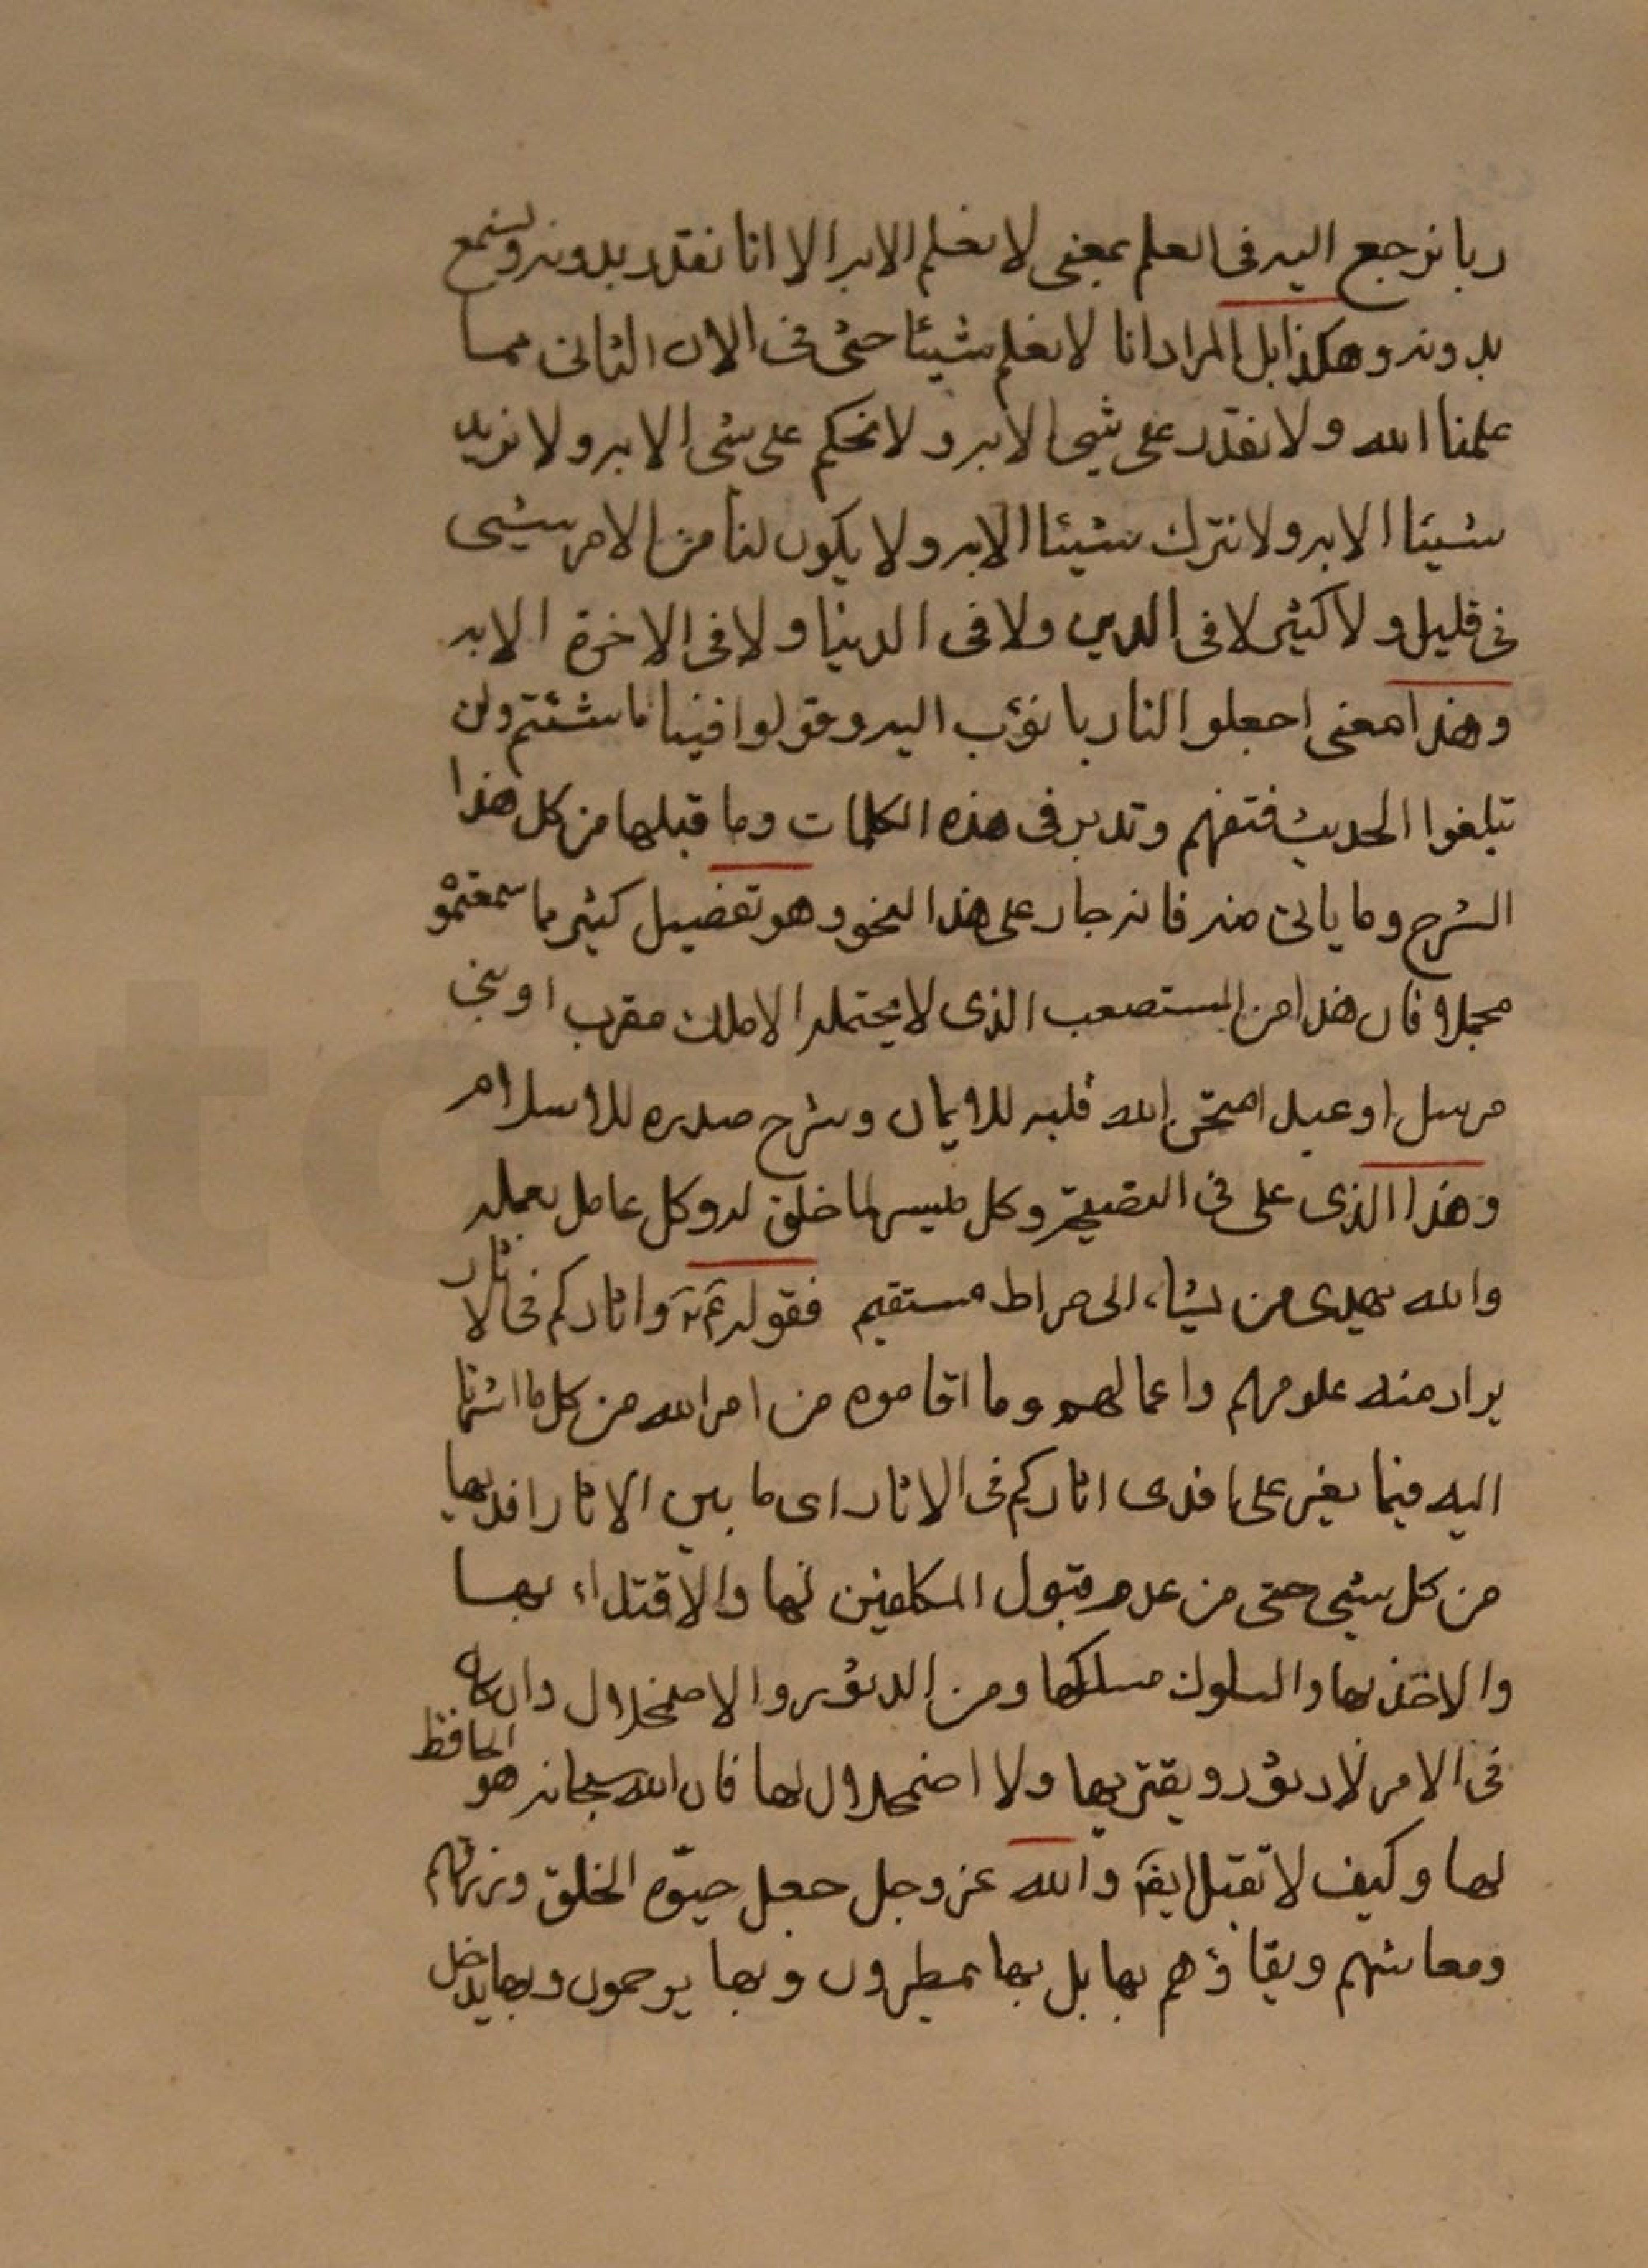 ربا نرجع اليه فى العلم بمعنى لا نعلم الا به الا انا نقدر بدونه ونسمع
بدونه وهكذا بل المراد انا لا نعلم شيئا حتى فى الان الثانى مما
علمنا الله ولا نقدر على شيئ الا به ولا نحكم على شئ الا به ولا نريد
شيئا الا به ولا نترك شيئا الا به ولا يكون لنا من الامر شيئ
فى قليل ولا كثير لا فى الدين ولا فى الدنيا ولا فى الاخرة الا به
وهذا معنى اجعلوا لنا ربا نؤب اليه وقولوا فينا ما شئتم ولن
تبلغوا الحديث فتفهم وتدبر فى هذه الكلمات وما قبلها من كل هذا
الشرح وما ياتى منه فانه جار على هذا النحو وهو تفصيل كثير مما سمعتمو
مجملا فان هذا من المستصعب الذى لا يحتمله الا ملك مقرب او نبى
مرسل او عبد امتحن الله قلبه للايمان وشرح صدره للاسلام
وهذا الذى على فى النصيحة وكل ميسر لما خلق له وكل عامل بعمله
والله يهدى من يشاء الى صراط مستقيم فقوله واثاركم فى الاثار
يراد منه علومهم واعمالهم وما اقاموه من امر الله من كل ما اشرنا
اليه فيما يغير على ما فدى اثاركم فى الاثار اى ما بين الاثار افديها
من كل شيئ حتى من عدم قبول المكلفين لها والاقتداء بها
والاخذ بها والسلوك مسلكها ومن الدثور والاضمحلال وان كان
فى الامر لا دثور ويقتر بها ولا اضمحلال لها فان الله سبحانه هو الحافظ
لها وكيف لا تقبل ايضا والله عز وجل جعل حيوة الخلق ورزقهم
ومعاشهم وبقاؤهم بها بل بها يمطرون وبها يرحمون وبها يدخل